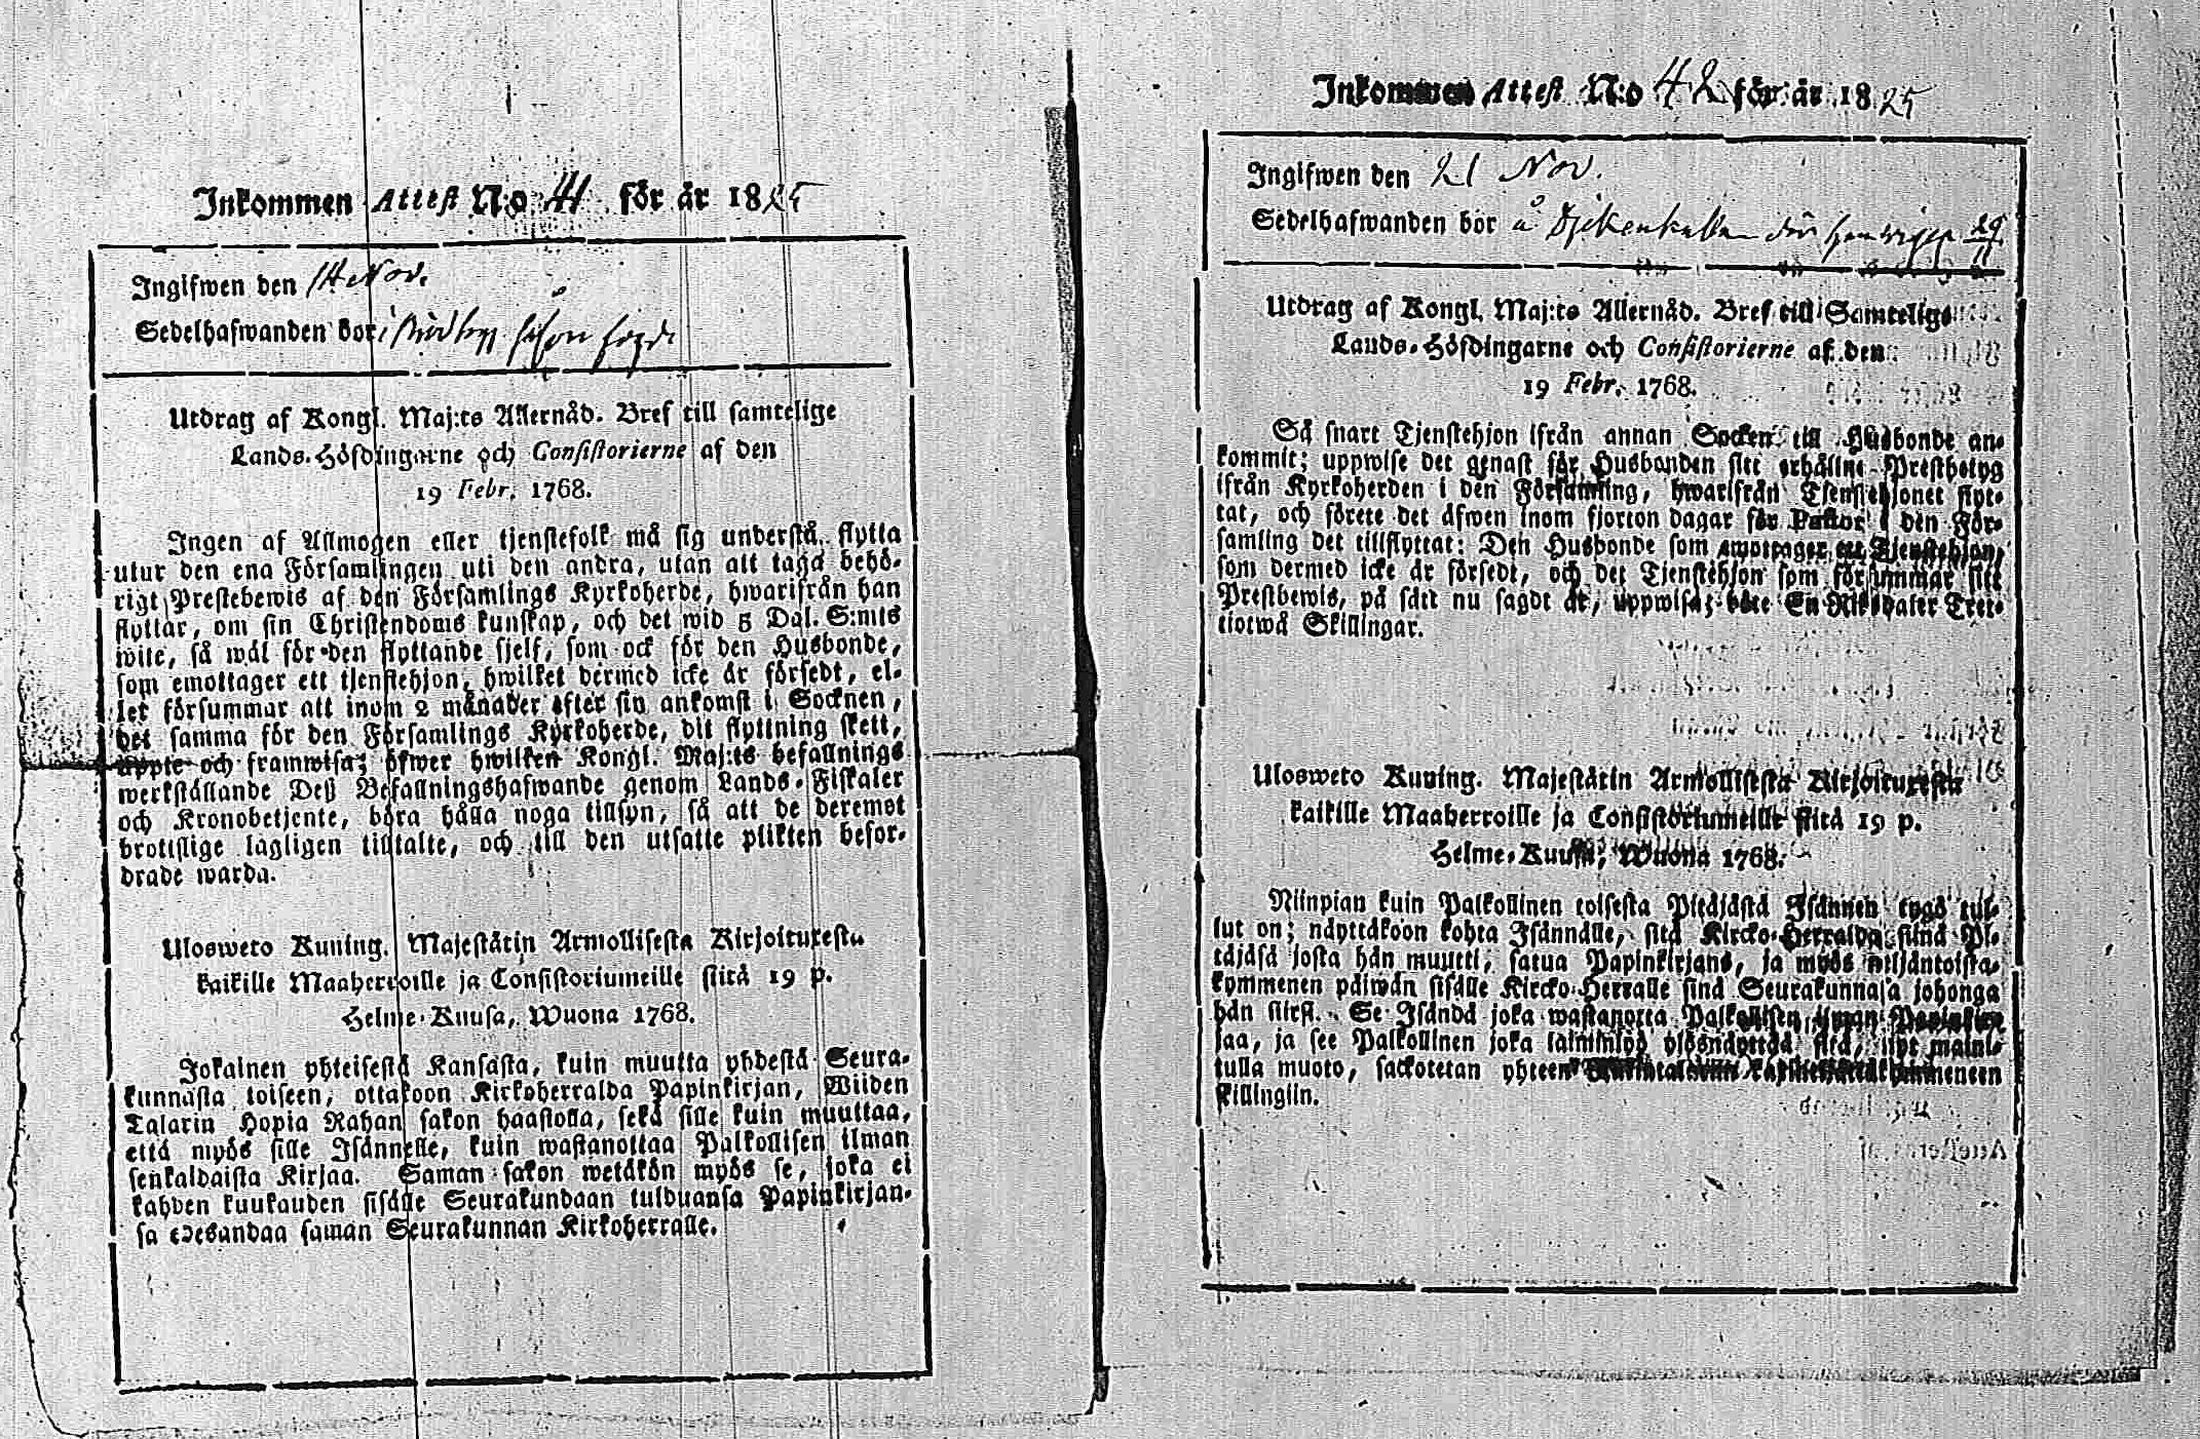 Inkommen Attest N:o 41 för år 1825
Ingifwen den 14 Nov.
Sedelhafwanden bor i
Utdrag af Kongl. Maj:ts Allernåd. Bref till samtelige
Lands-Höfdingarne och Consistorierne af den
19 Febr. 1768.
Ingen af Allmogen eller tjenstefolk må sig understå flytta
utur den ena Församlingen uti den andra, utan att taga behö-
rigt Prestebewis af den Församlings Kyrkoherde, hwarifrån han
flyttar, om sin Christendoms kunskap, och det wid 5 Dal. S:mts
wite, så wäl för den flyttande sjelf, som ock för den Husbonde,
som emottager ett tjenstehjon, hwilket dermed icke är försedt, el-
ler försummar att inom 2 månader efter sin ankomst i Socknen,
det samma för den Församlings Kyrkoherde, dit flyttning skett,
uppte och framwisa; öfwer hwilken Kongl. Maj:ts befallnings
werkställande Deß Befallningshafwande genom Lands-Fiskaler
och Kronobetjente, böra hålla noga tillsyn, så att de deremot
brottslige lagligen tilltalte, och till den utsatte plikten befor-
drade warda.
Ulosweto Kuning. Majestätin Armollisesta Kirjoituxesta
kaikille Maaherroille ja Consistoriumeille siitä 19 p.
Helme-Kuusa, Wuona 1768.
Jokainen yhteisestä Kansasta, kuin muutta yhdestä Seura-
kunnasta toiseen, ottakoon Kirkoherralda Papinkirjan, Wiiden
Talarin Hopia Rahan sakon haastolla, sekä sille kuin muuttaa,
että myös sille Isännelle, kuin wastanottaa Palkollisen ilman
senkaldaista Kirjaa. Saman sakon wetäkön myös se, joka ei
kahden kuukauden sisälle Seurakundaan tulduansa Papinkirjan-
sa edesandaa saman Seurakunnan Kirkoherralle.
Inkommen Attest N:o 42 för år 1825
Ingifwen den 21 Nov.
Sedelhafwanden bor å
Utdrag af Kongl. Maj:ts Allernåd. Bref till Samtelige
Lands-Höfdingarne och Consistorierne af den
19 Febr. 1768.
Så snart Tjenstehjon ifrån annan Socken till Husbonde an-
kommit; uppwise det genast för Husbonden sitt erhållne Prestbetyg
ifrån Kyrkoherden i den Församling, hwarifrån Tjenstehjonet flyt-
tat, och förete det äfwen inom fjorton dagar för Pastor i den För-
samling det tillflyttat: Den Husbonde som emottager ett Tjenstehjon,
som dermed icke är försedt, och det Tjenstehjon som försummar sitt
Prestbewis, på sätt nu sagdt är, uppwisa; böte En Riksdaler Tret-
tiotwå Skillingar.
Ulosweto Kuning. Majestätin Armollisesta Kirjoituxesta
kaikille Maaherroille ja Consistoriumeille siitä 19 p.
Helme-Kuusa, Wuona 1768.
Niinpian kuin Palkollinen toisesta Pitäjästä Isännen tygö tul-
lut on; näyttäkoon kohta Isännälle, sitä Kircko-Herralda siinä Pi-
täjäsä josta hän muutti, saatua Papinkirjans, ja myös neljäntoista-
kymmenen päiwän sisälle Kircko-Herralle sinä Seurakunnasa johonga
hän siirsi. Se Isändä joka wastanotta Palkollisen ilman Papinkir-
jaa, ja see Palkollinen joka laiminlyö ylösnäyttää sitä, nyt maini-
tulla muoto, sackotetan yhteen kymmeneen
skillingiin.